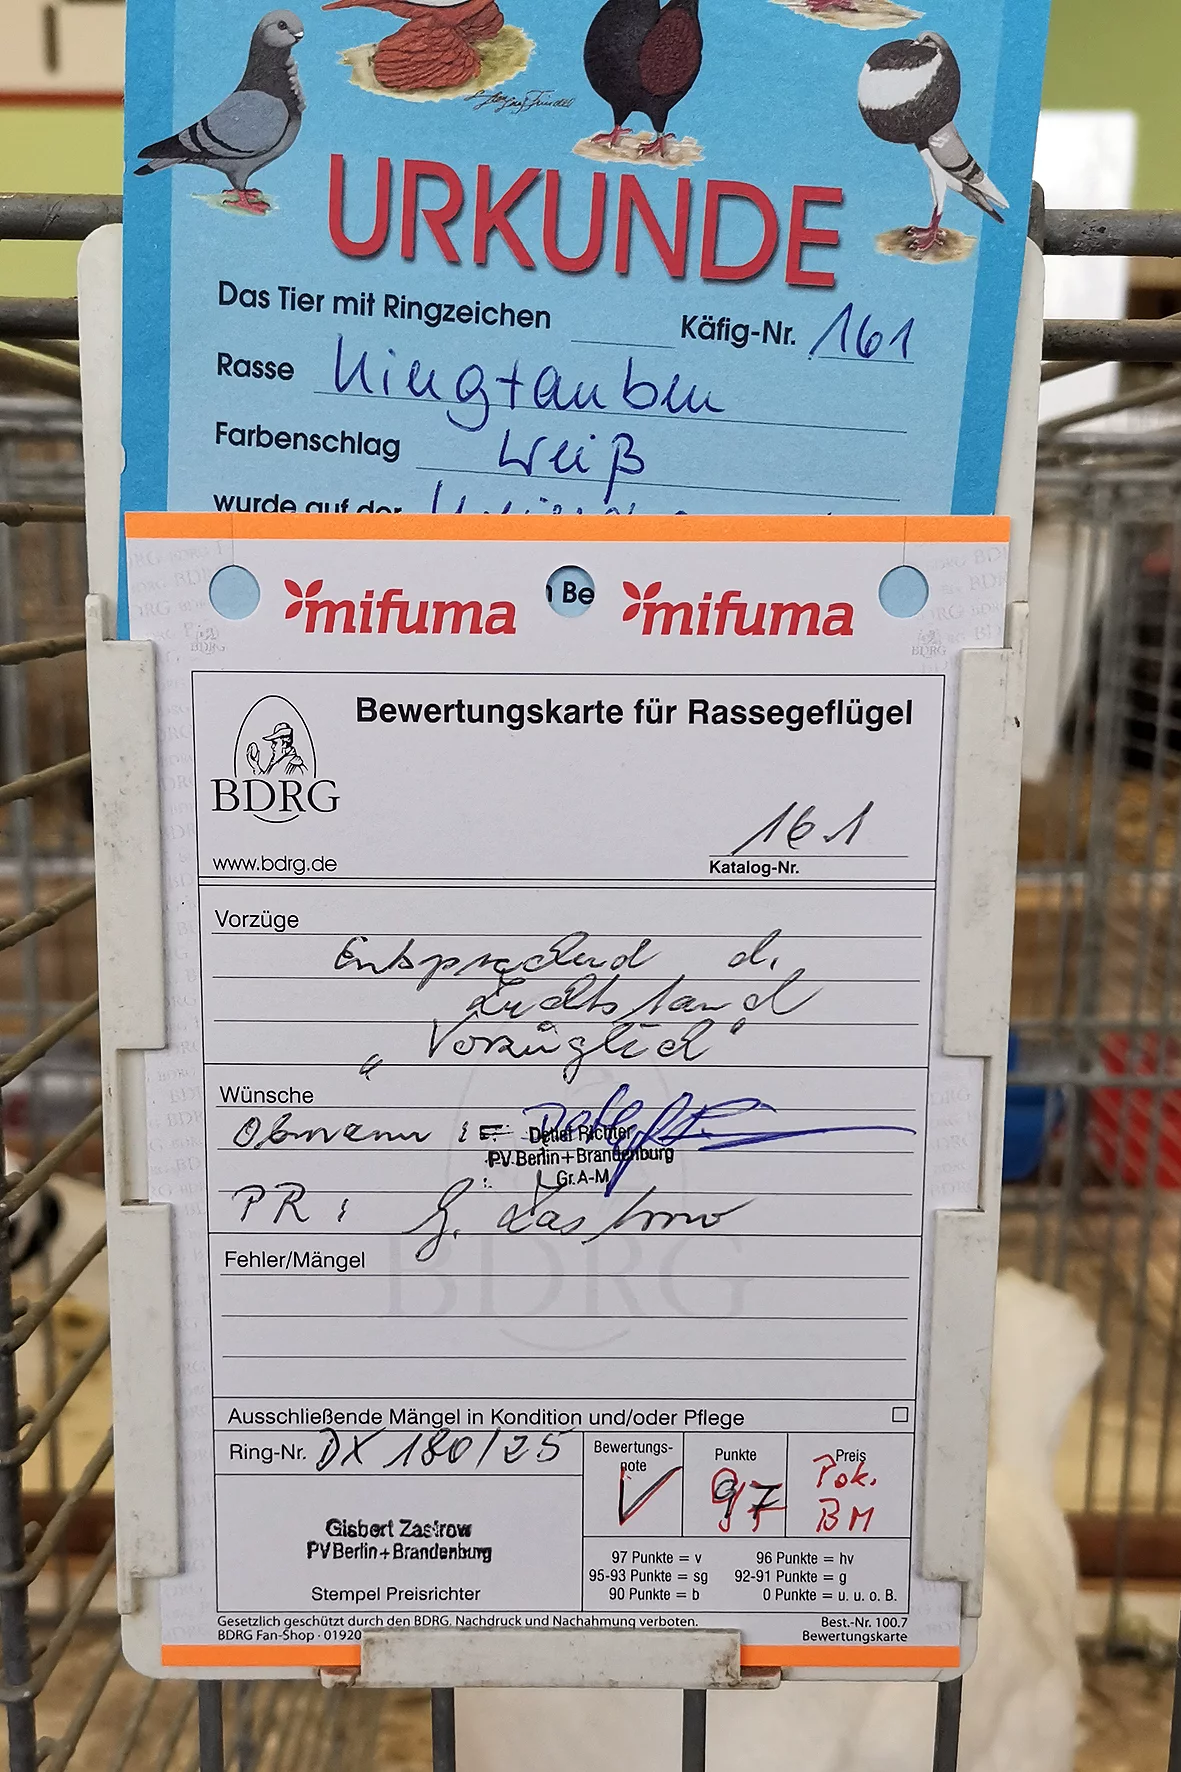 URKUNDE
Das Tier mit Ringzeichen Käfig-Nr. 161
Rasse Kingtauben
Farbenschlag Weiß
wurde auf der
mifuma Be mifuma
Bewertungskarte für Rassegeflügel
BDRG
161
www.bdrg.de
Katalog-Nr.
Vorzüge
Entsprechend d.
Zuchtstand
„Vorzüglich"
Wünsche
Obmann :
Detlef Richter
PV.Berlin+Brandenburg
Gr.A-M
PR : G. Zastrow
Fehler/Mängel
BDRG
Ausschließende Mängel in Kondition und/oder Pflege
Ring-Nr. DX 180/25
Bewertungs-
note
V
Punkte
97
Preis
Pok.
BM
Gisbert Zastrow
PV Berlin+Brandenburg
Stempel Preisrichter
97 Punkte = v 96 Punkte = hv
95-93 Punkte = sg 92-91 Punkte = g
90 Punkte = b 0 Punkte = u. u. o. B.
Gesetzlich geschützt durch den BDRG. Nachdruck und Nachahmung verboten. Best.-Nr. 100.7
BDRG Fan-Shop · 01920 Bewertungskarte